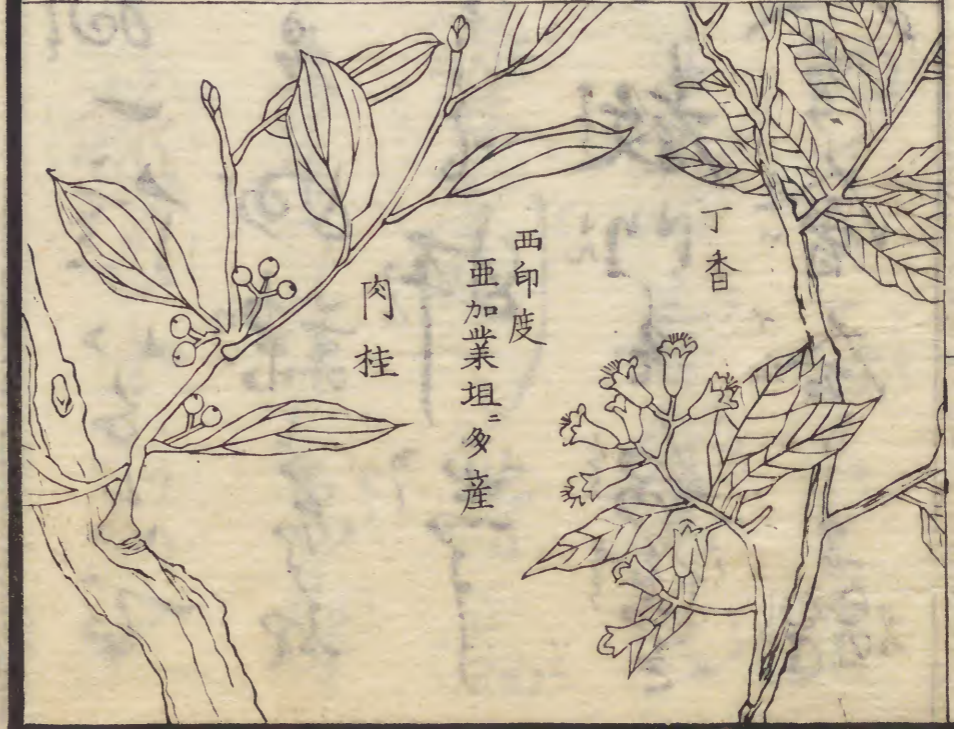 丁香
西印度
亜加業坦ニ多産
肉桂